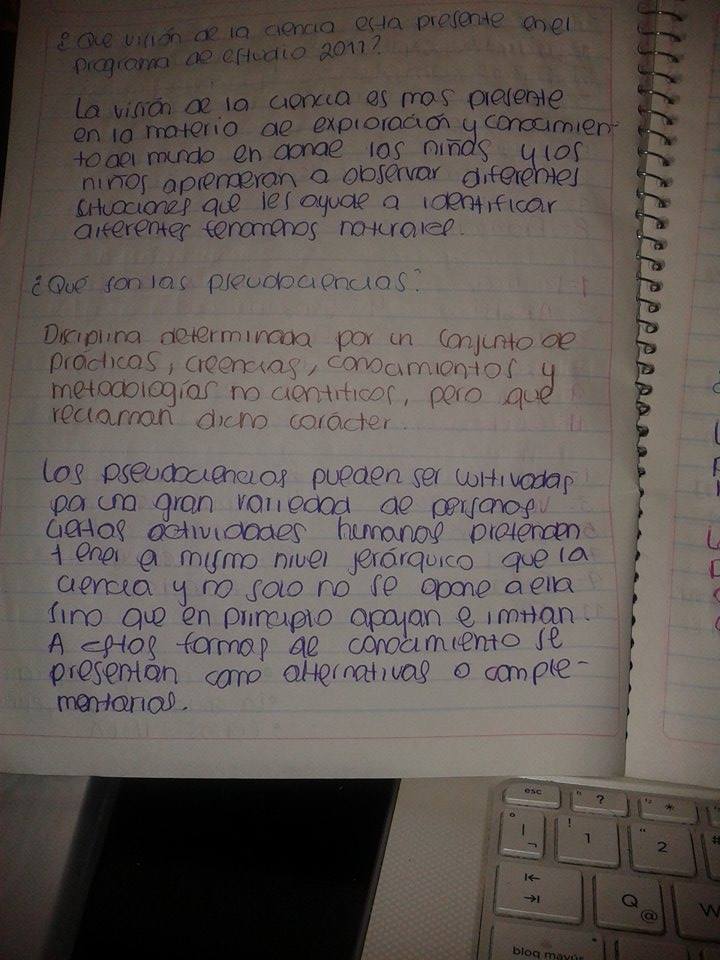 ¿Que visión de la ciencia esta presente en el
programa de estudio 2011?
La visión de la ciencia es mas presente
en la materia de exploración y conocimien-
to del mundo en donde las niñas y los
niños aprenderan a observar diferentes
situaciones que les ayude a identificar
diferentes fenomenos naturales.
¿Qué son las pseudociencias?
Disciplina determinada por un conjunto de
prácticas, creencias, conocimientos y
metodologías no científicos, pero que
reclaman dicho carácter.
Las pseudociencias pueden ser cultivadas
por una gran variedad de personas
ciertas actividades humanas pretenden
tener el mismo nivel jerárquico que la
ciencia y no solo no se opone a ella
sino que en principio apoyan e imitan.
A estas formas de conocimiento se
presentan como alternativas o comple-
mentarias.
esc
" ?
*
! 1
" 2
Q @
W
bloq mayús